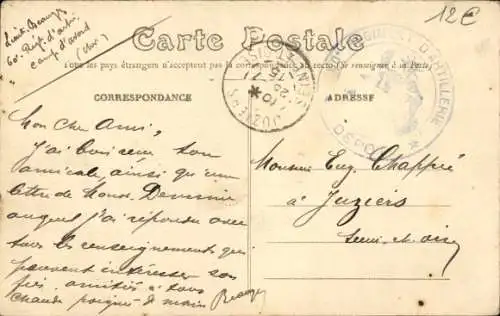 Lieut. Beaugey
60e Regt d'arti
Camp d'avord
(Cher)
12€
Carte Postale
Tous les pays étrangers n'acceptent pas la correspondance au recto (Se renseigner à la Poste)
CORRESPONDANCE
ADRESSE
JUZIERS
REGIMENT D'ARTILLERIE
DEPOT
Mon cher Ami,
J'ai bien reçu ton
amicale, ainsi qu'une
lettre de Mons.
auquel j'ai répondu avec
tous les renseignements qui
peuvent intéresser son
fils. amitiés à tous
chaude poignée de main Beaugey
Monsieur Eug. Chappée
à Juziers
Seine-et-Oise